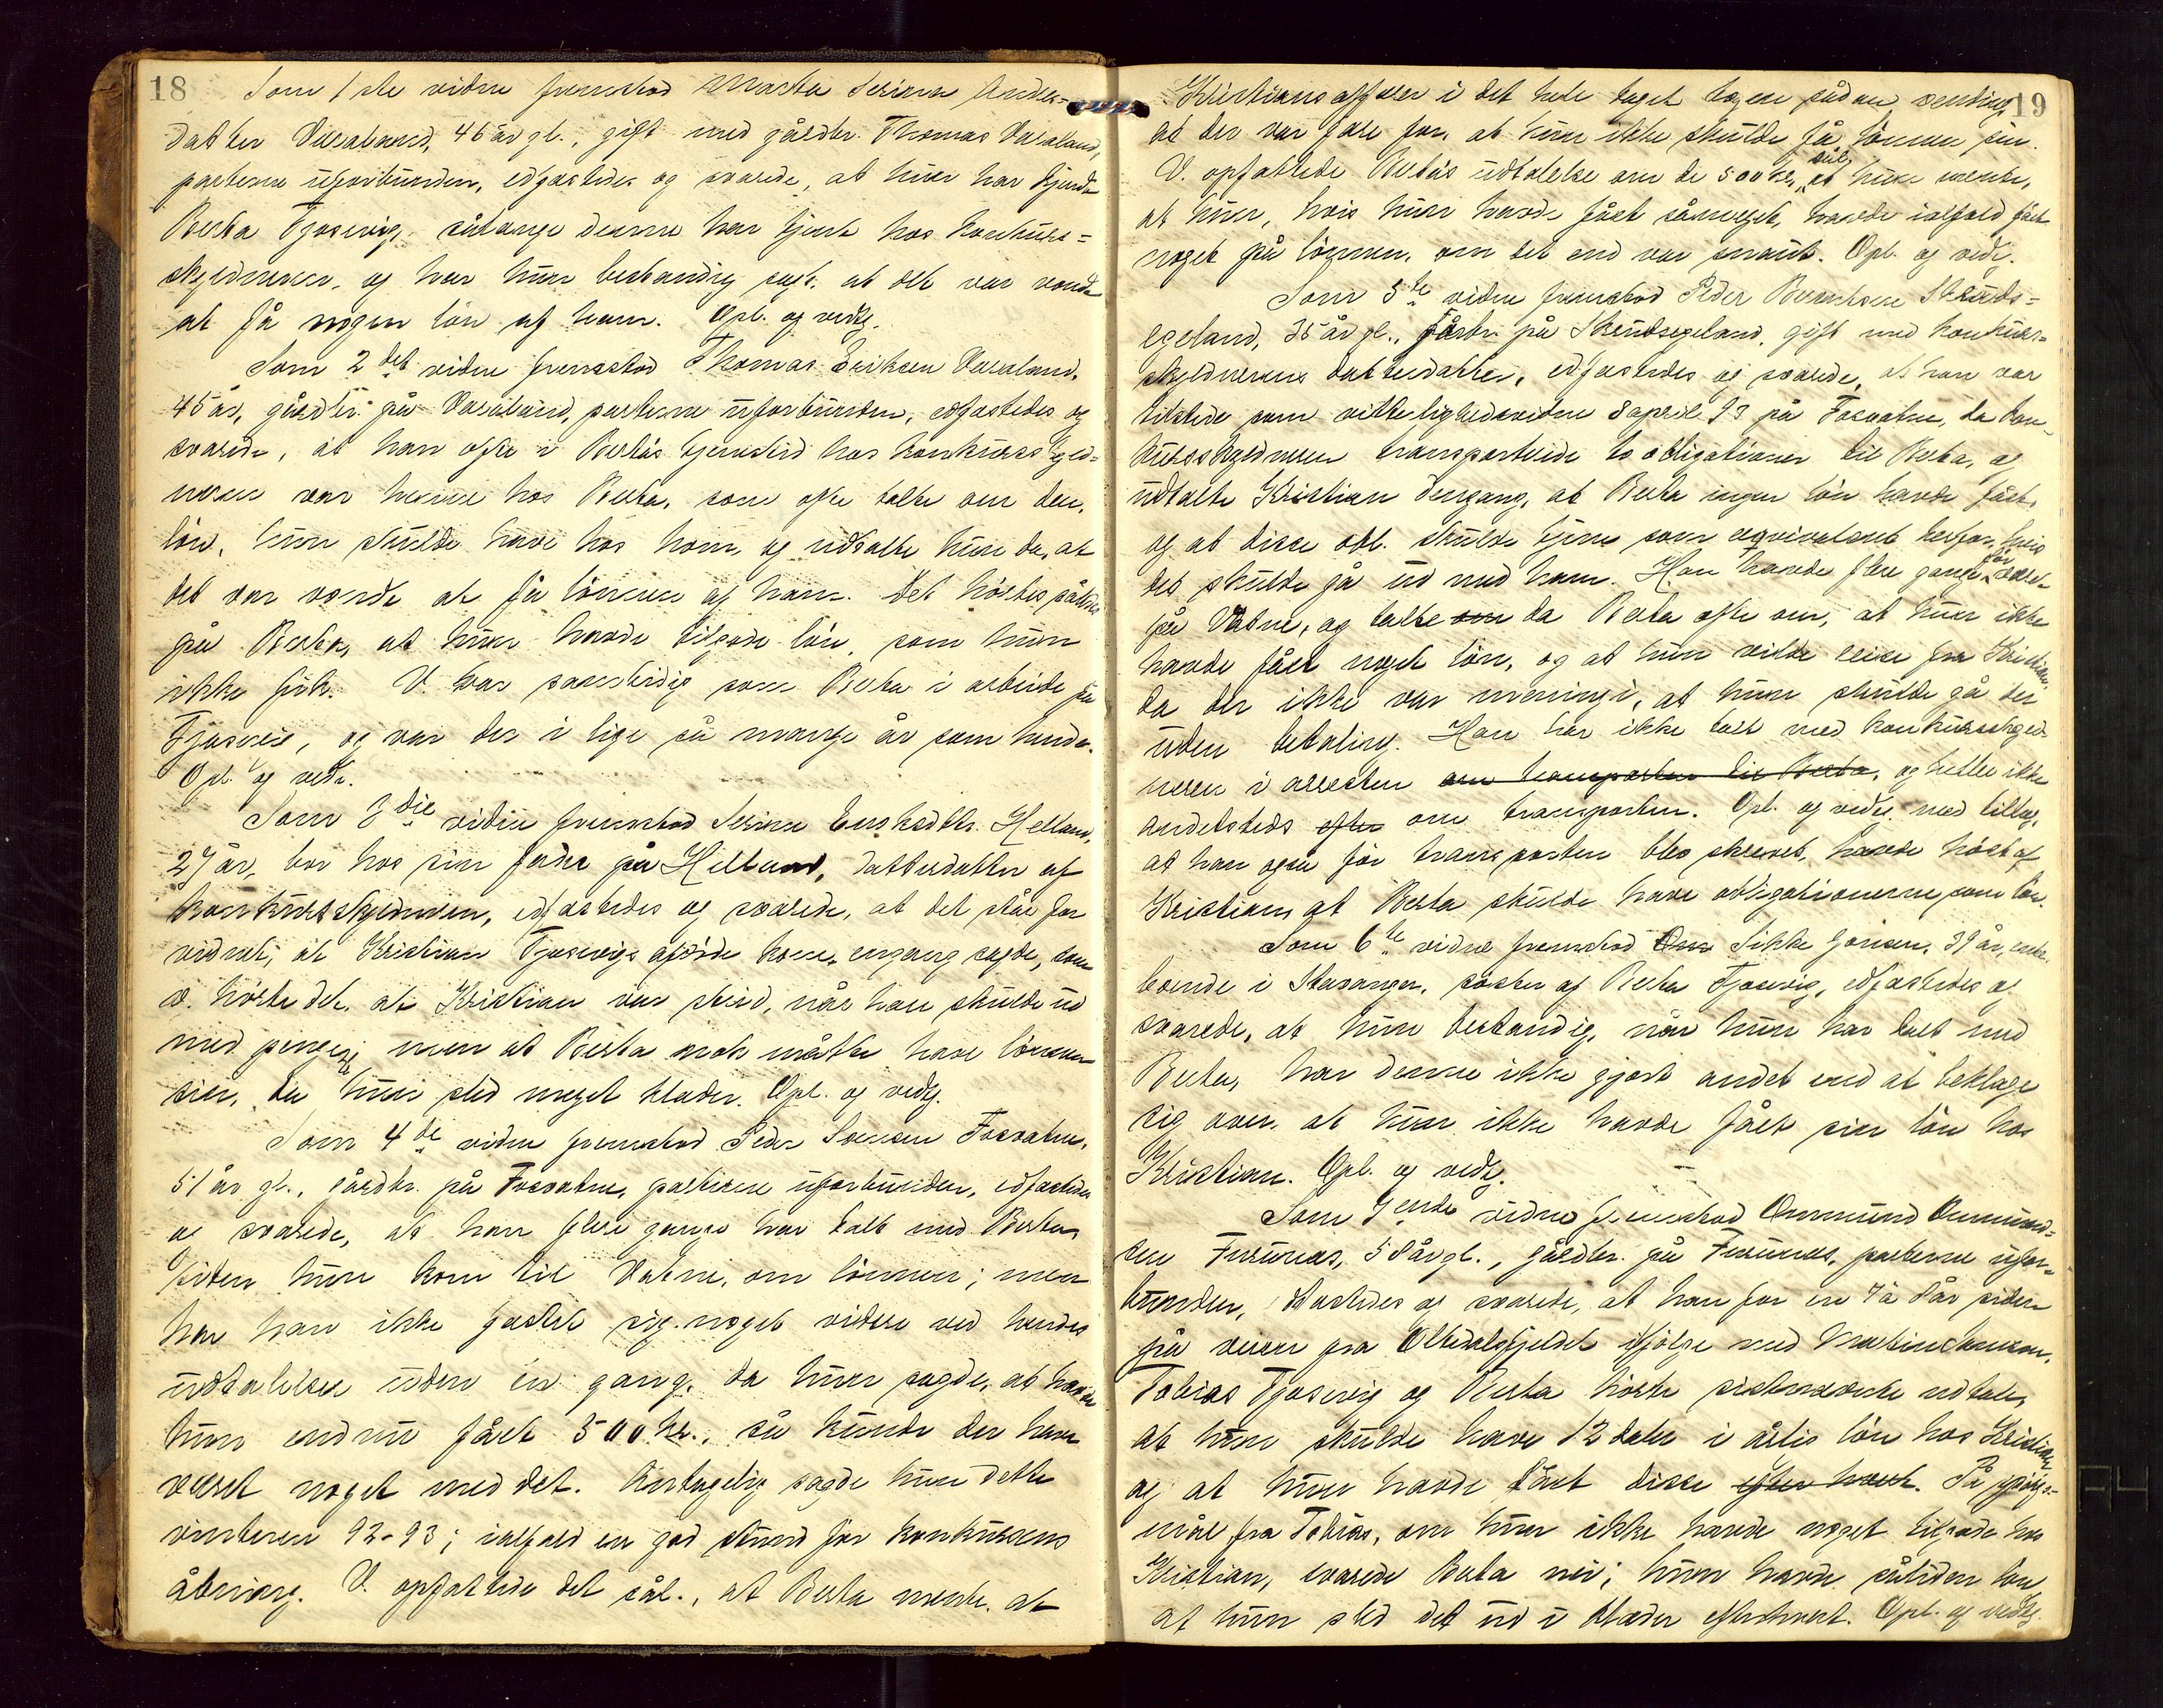 18
Som 1ste vidne fremstod Marta Serina Anders=
datter Varaland, 46 år gl., gift med gårdbr. Thomas Varaland,
parterne uforbunden, edfæstedes og svarede, at hun har kjendt
Berta Tjosevig, sålænge denne har tjent hos konkurs=
skyldneren, og har hun bestandig sagt, at det var vondt
at få nogen løn af ham. Opl. og vedtg.
Som 2det vidne fremstod Thomas Eriksen Varaland,
45 år, gårdbr. på Varaland, parterne uforbunden, edfæstedes og
svarede, at han ofte i Bertas tjenestid hos konkursskyld=
neren var hjemme hos Berta, som ofte talte om den
løn, hun skulde have hos ham, og udtalte hun da, at
det var vondt at få lønnen af ham. Det hørtes således
på Berta, at hun havde tilgode løn, som hun
ikke fik. V. var samtidig som Berta i arbeide på
Tjosevig, og var der i lige så mange år som hende.
Opl. og vedt.
Som 3die vidne fremstod Serina Enoksdtr. Helland,
27 år, bor hos sin fader på Helland, datterdatter af
konkursskyldneren, edfæstedes og svarede, at det står for
vidnet, at Kristian Tjosevigs afdøde kone engang sagde, som
v. hørte det, at Kristian var strid, når han skulde ud
med penge, men at Berta nok måtte have lønnen
sin, da hun sled meget klæder. Opl. og vedtg.
Som 4de vidne fremstod Peder Svensen Fosvatne,
51 år gl., gårdbr. på Fosvatne, parterne uforbunden, edfæstedes
og svarede, at han flere gange har talt med Berta,
siden hun kom til Vatne, om lønnen; men
har han ikke fæstet sig noget videre ved hendes
udtalelser uden en gang, da hun sagde, at havde
hun endnu fået 500 kr., så kunde der have
været noget med det. Antagelig sagde hun dette
vinteren 92-93; ialfald en god stund før konkursens
åbning. V. opfattede det sål., at Berta mente, at
19
Kristians affærer i det hele taget tog en sådan vending,
at der var fare for, at hun ikke skulde få lønnen sin.
V. opfattede Berta's udtalelse om de 500 kr. sål, at hun mente,
at hun, hvis hun havde fået såmeget, havde ialfald fået
noget på lønnen, om det end var smaat. Opl. og vedt.
Som 5te vidne fremstod Peder Berntsen Skruds=
egeland, 35 år gl., gårdbr. på Skrudsegeland, gift med konkurs=
skyldnerens datterdatter, edfæstedes og svarede, at han var
tilstede som vitterlighedsvidne 8 april 93 på Fosvatne, da kon=
kursskyldneren transporterede to obligationer til Berta, og
udtalte Kristian dengang, at Berta ingen løn havde fået,
og at disse obl. skulde tjene som æqvivalent herfor, hvis
det skulde gå ud med ham. Han havde flere gange før været
på Vatne, og talte da Berta ofte om, at hun ikke
havde fået noget løn, og at hun vilde reise fra Kristian,
da der ikke var mening i, at hun skulde gå der
uden betaling. Han har ikke talt med konkursskyld
neren i arresten om transporten til Berta, og heller ikke
andetsteds efter om transporten. Opl. og vedtg. med tillæg,
at han også før transporten blev skrevet, havde hørt af
Kristian, at Berta skulde have obligationerne som løn.
Som 6te vidne fremstod Sikke Jonsen, 39 år, enke,
boende i Stavanger, søster af Berta Tjosevig, edfæstedes og
svarede, at hun bestandig, når hun har talt med
Berta, har denne ikke gjort andet end at beklage
sig over, at hun ikke havde fået sin løn hos
Kristian. Opl. og vedtg.
Som 7ende vidne fremstod Ommund Ommund=
sen Furunes, 58 år gl., gårdbr. på Furunes, parterne ufor=
bunden, edfæstedes og svarede, at han for en 7 à 8 år siden
på veien fra Oltedalsfjeldet ifølge med Martin
Tobias Tjosevig og Berta hørte sidstnævnte udtale,
at hun skulde have 12 daler i årlig løn hos Kristian
og at hun havde fået disse efter hvert. På spørgs=
mål fra Tobias, om hun ikke havde noget tilgode hos
Kristian, svarede Berta nei; hun havde såliden løn,
at hun sled det ud i klæder efterhvert. Opl. og vedtg.